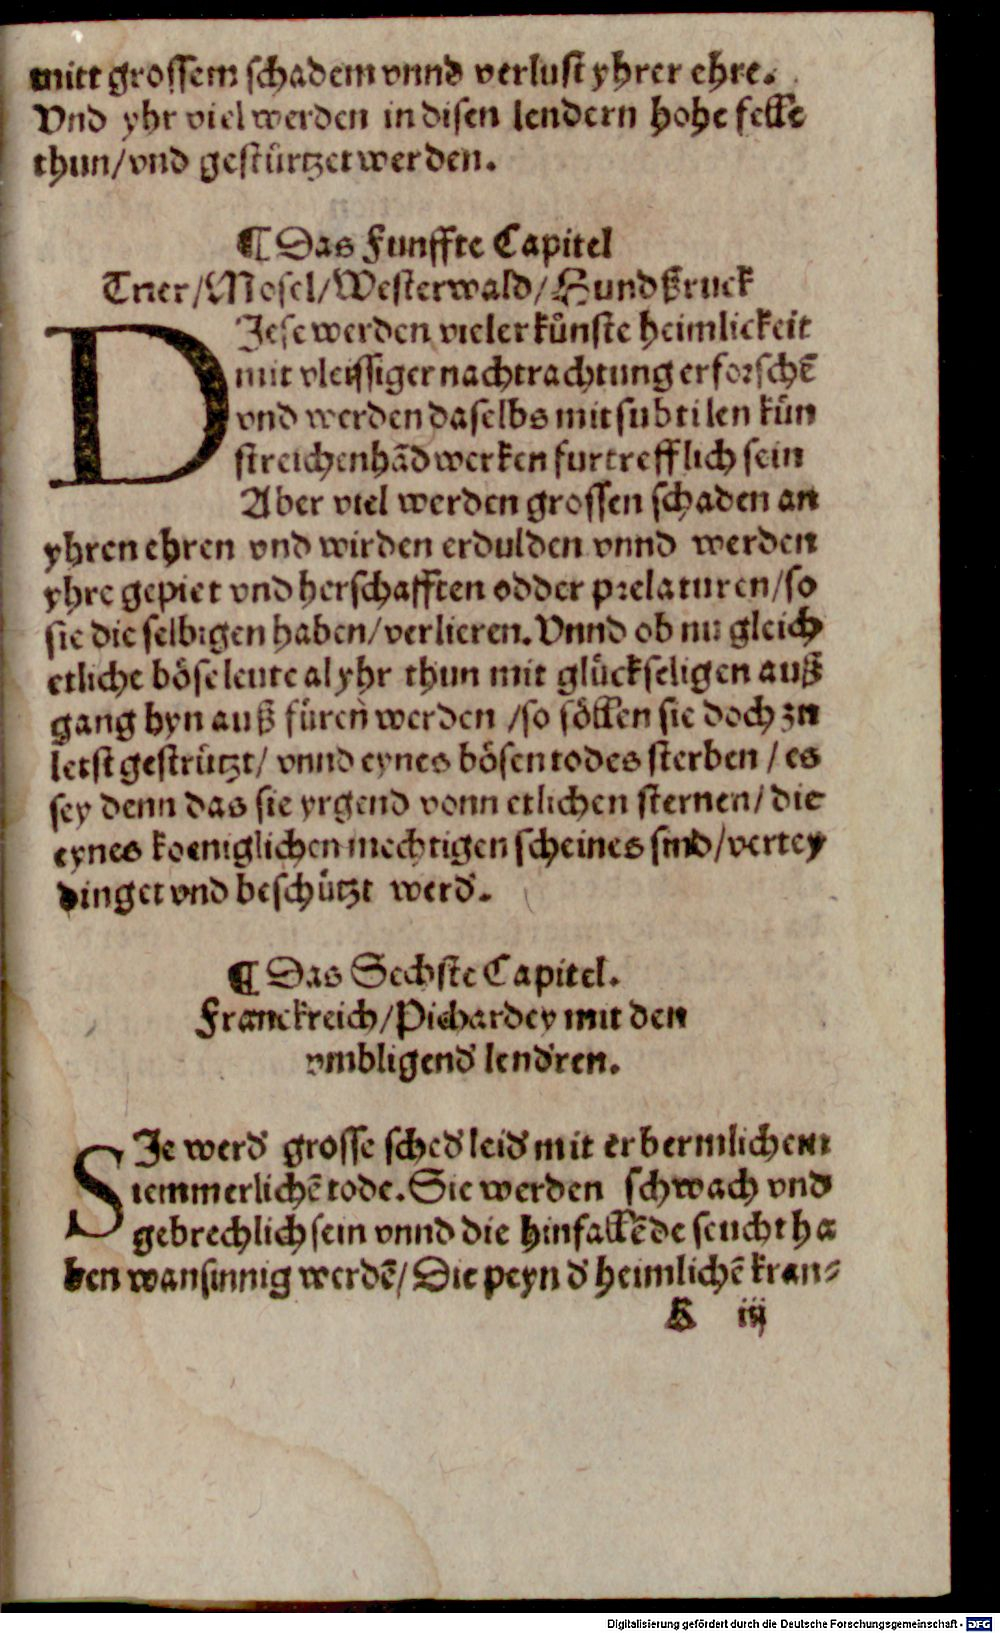 mitt grossem schadem vnnd verlust yhrer ehre.
Vnd yhr viel werden in disen lendern hohe felle
thun/vnd gestürtzet werden.
¶ Das Funffte Capitel
Trier/Mosel/Westerwald/Hundßruck
DJese werden vieler künste heimlickeit
mit vleissiger nachtrachtung erforschē
vnd werden daselbs mit subtilen kün
streichen hādwerken furtrefflich sein
Aber viel werden grossen schaden an
yhren ehren vnd wirden erdulden vnnd werden
yhre gepiet vnd herschafften odder prelaturen/so
sie die selbigen haben/verlieren. Vnnd ob nu gleich
etliche böse leute al yhr thun mit glückseligen auß
gang hyn auß füren werden /so söllen sie doch zu
letst gestrützt/ vnnd eynes bösen todes sterben / es
sey denn das sie yrgend vonn etlichen sternen/ die
eynes koeniglichen mechtigen scheines sind/vertey
dinget vnd beschützt werd.
¶ Das Sechste Capitel.
Franckreich/Pichardey mit den
vmbligend lendren.
SJe werd grosse sched leid mit erbermlichem
iemmerlichē tode. Sie werden schwach vnd
gebrechlich sein vnnd die hinfallēde seucht ha
ben wansinnig werdē/ Die peyn d heimlichē kran⸗
B iij
Digitalisierung gefördert durch die Deutsche Forschungsgemeinschaft - DFG